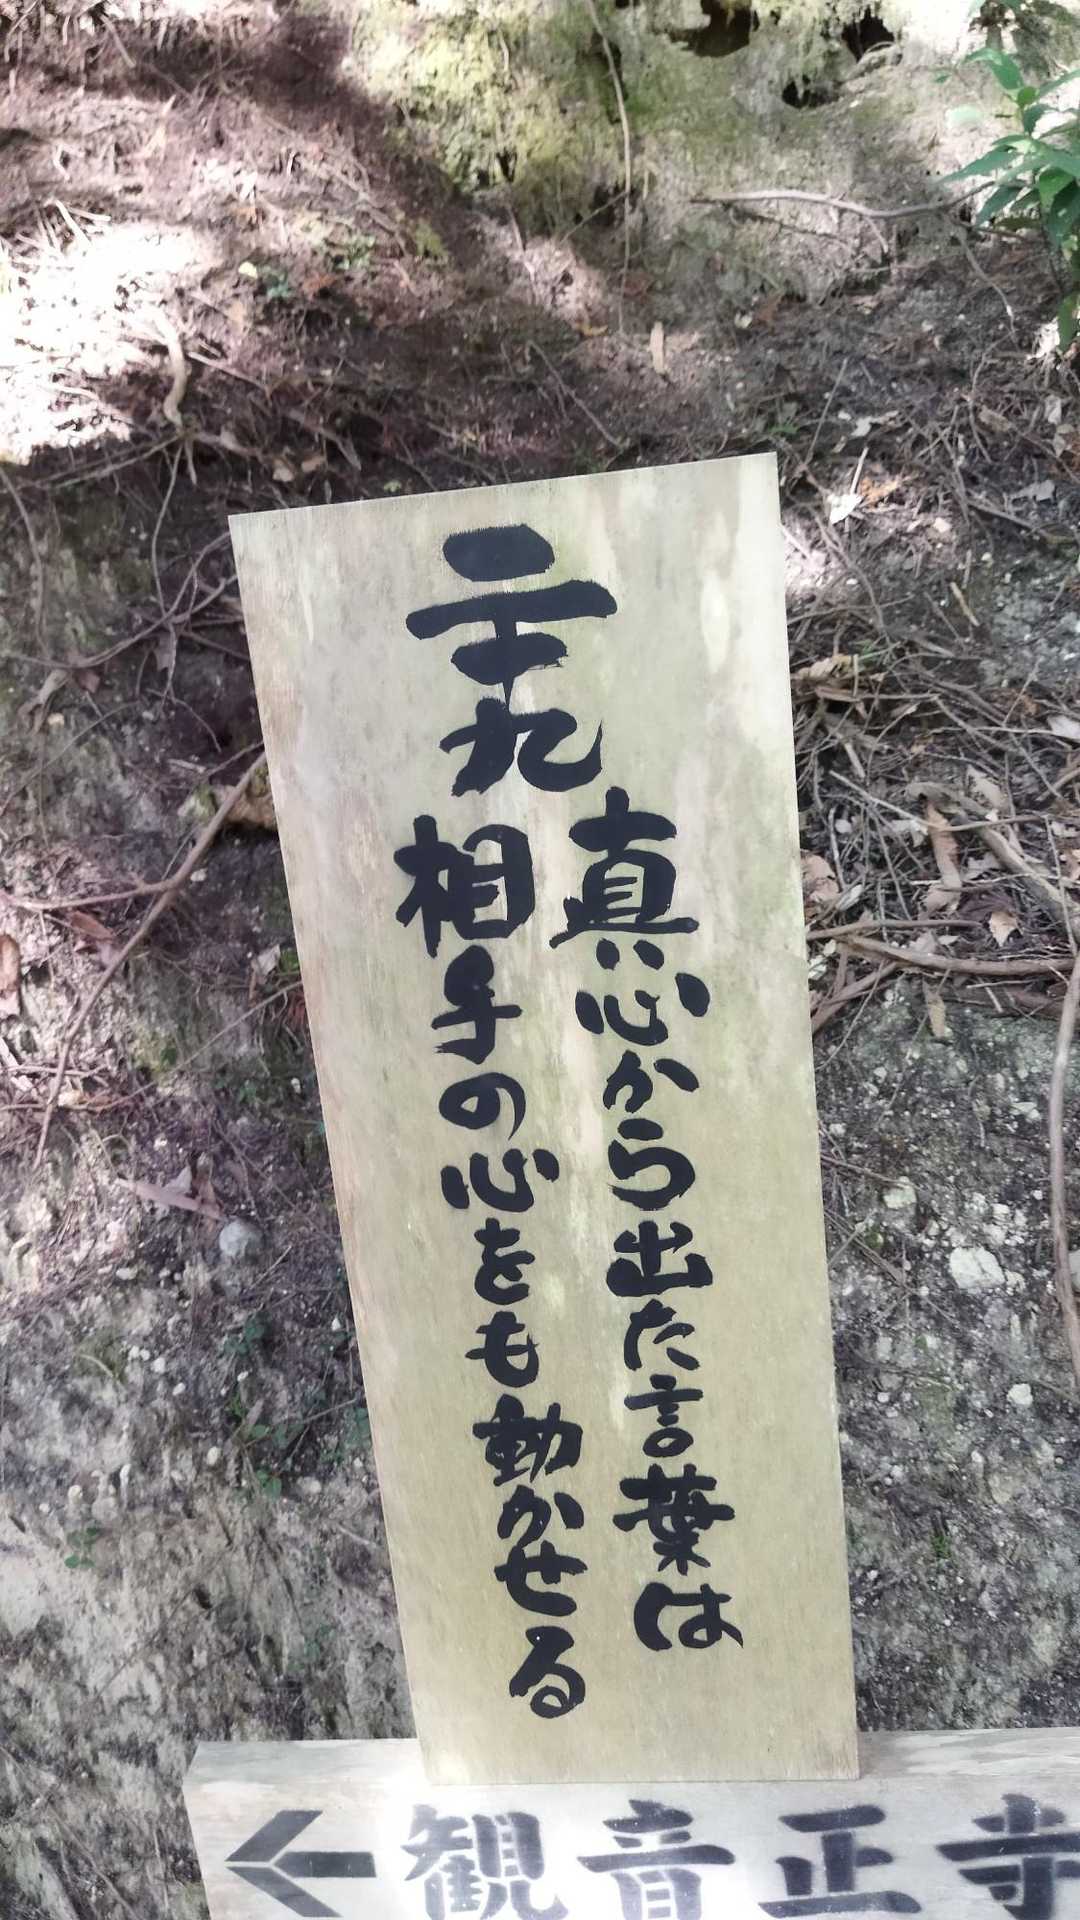 二十九
真心から出た言葉は
相手の心をも動かせる
←観音正寺